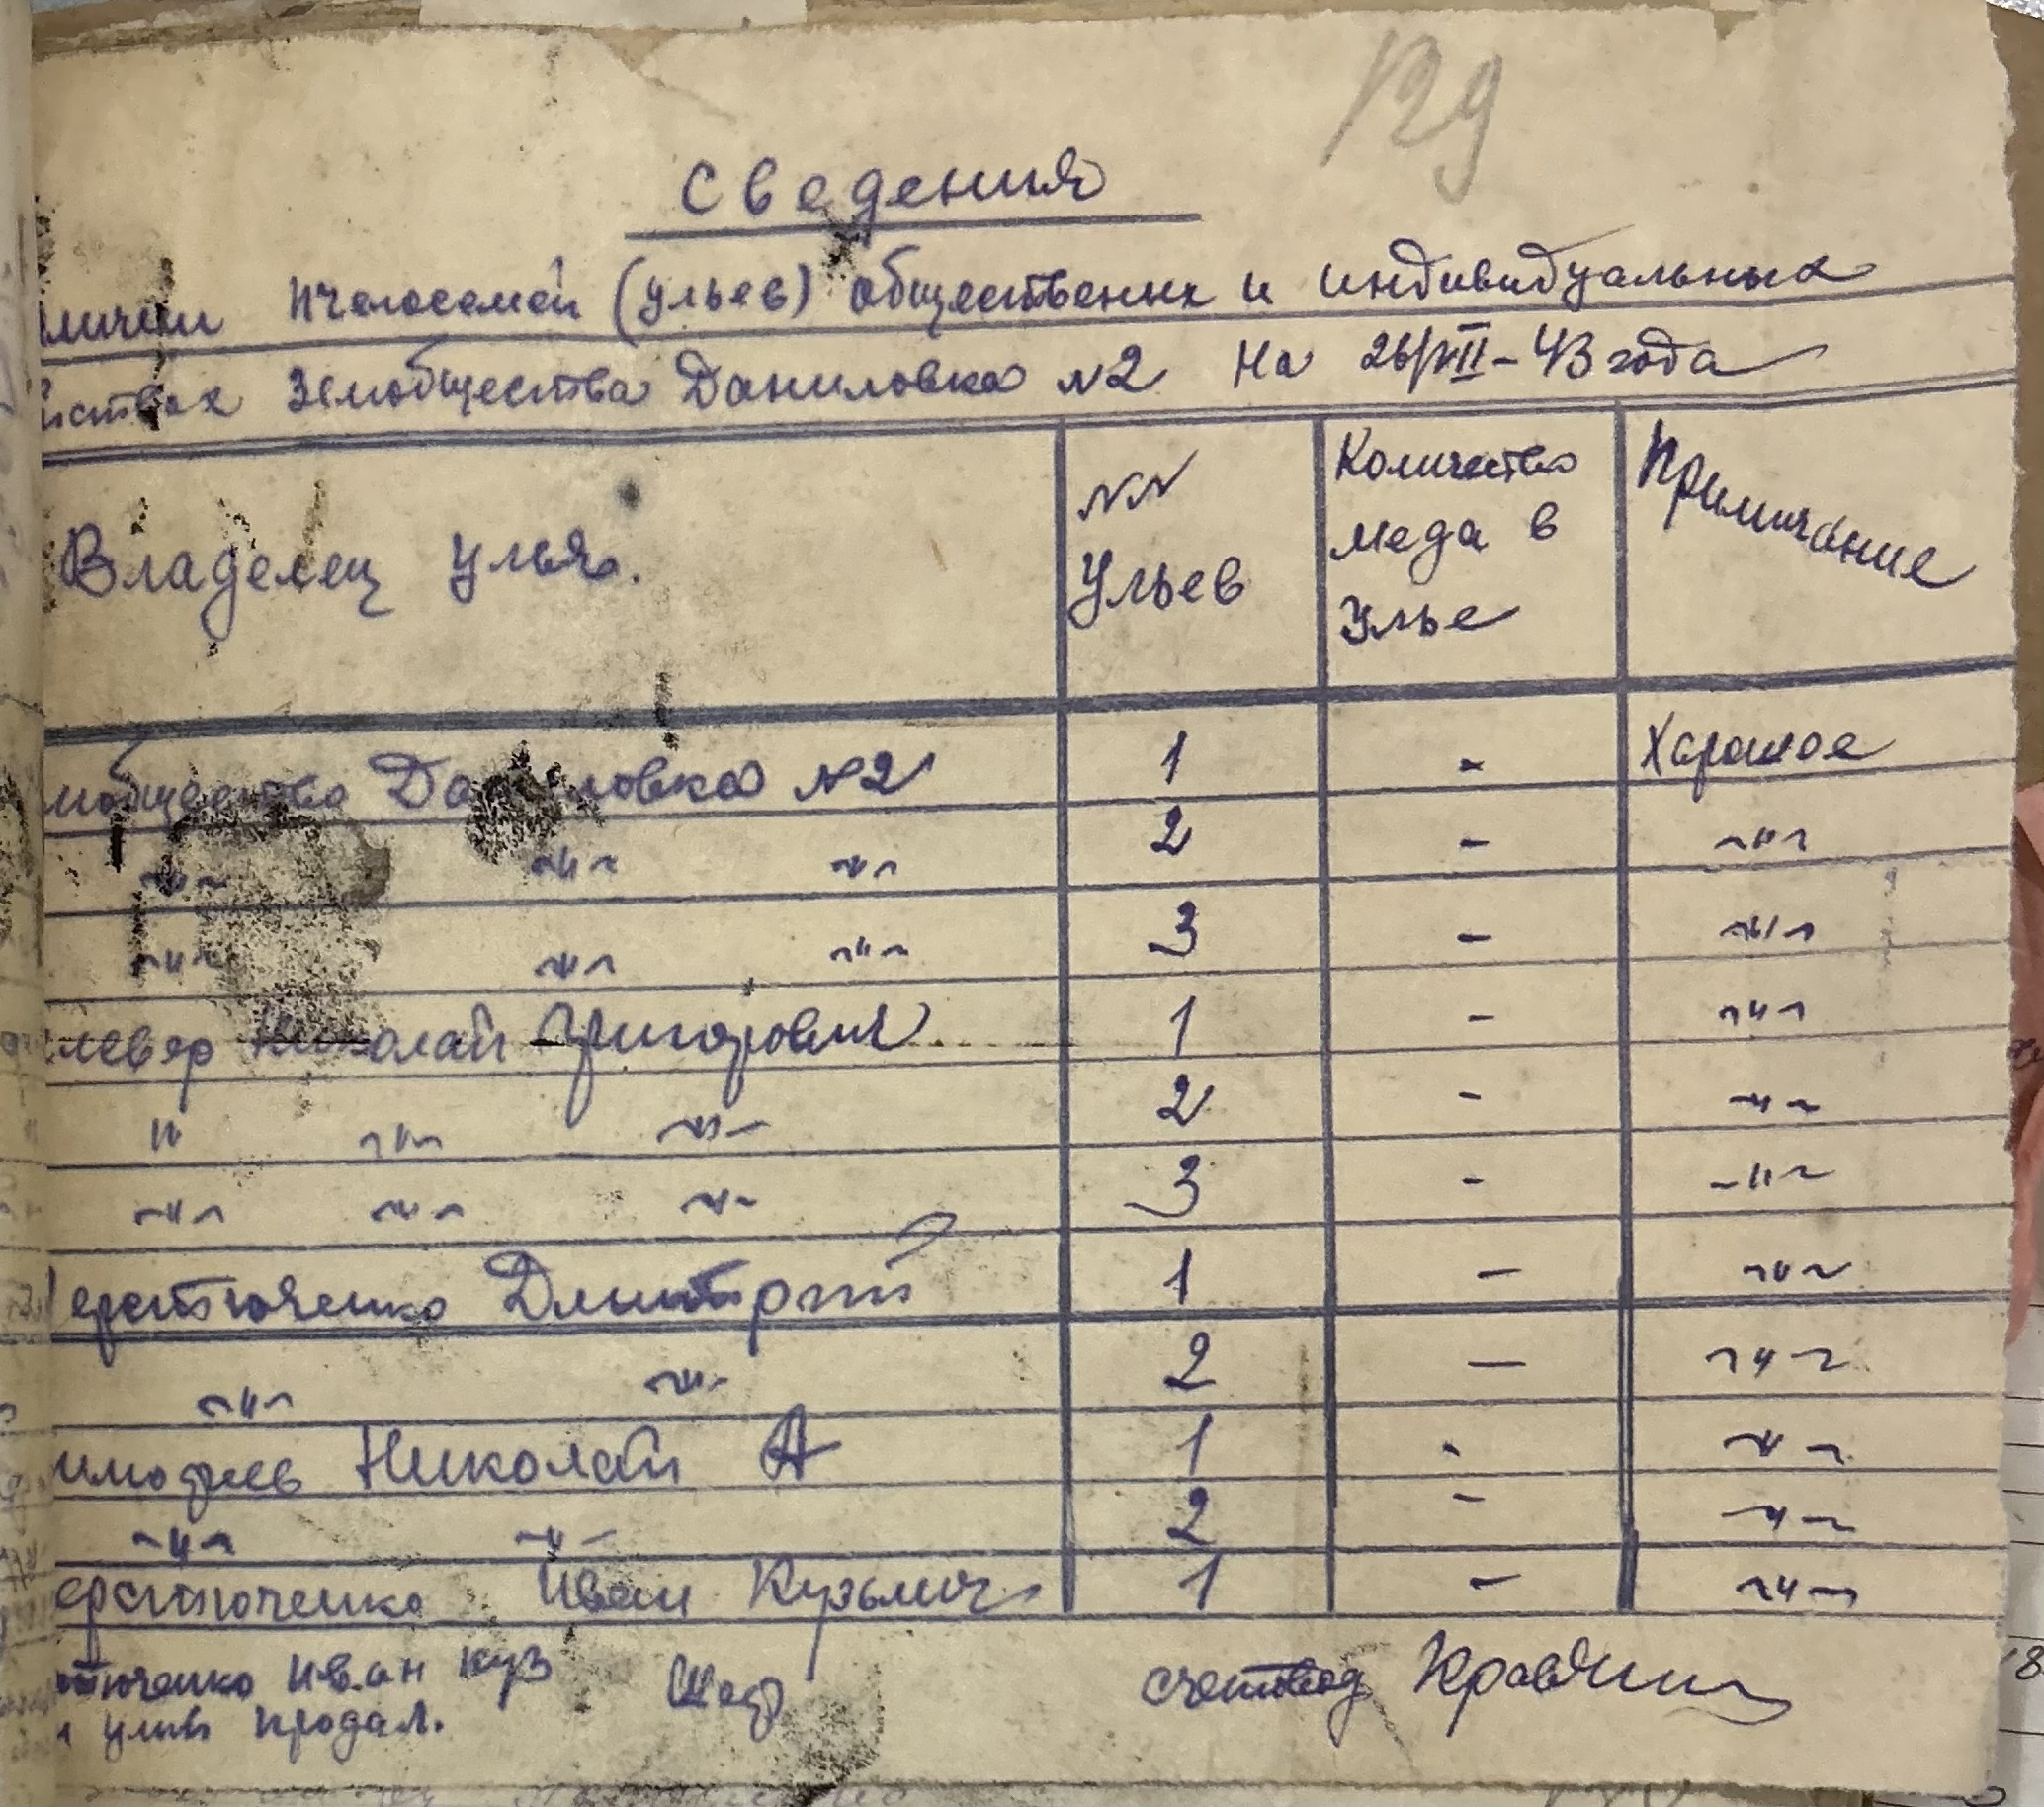 129
Сведения
личеи пчелосемей (ульев) общественых и индивидуальных
йствах Земобщества Даниловка №2 на 26/VII-43 года
Владелец улья.
№№ Ульев
Количество меда в Улье
Примичание
мобщество Даниловка №2 1 - Харошое
-"- -"- -"- 2 - -"-
-"- -"- -"- 3 - -"-
Николай Григорович 1 - -"-
" -"- -"- 2 - -"-
-"- -"- -"- 3 - -"-
ерстюченко Дмитрий 1 - -"-
-"- -"- 2 - -"-
имофеев Николай А 1 - -"-
-"- -"- 2 - -"-
ерстюченко Иван Кузьмич 1 - -"-
стюченко Иван Куз
продал.
счетовод